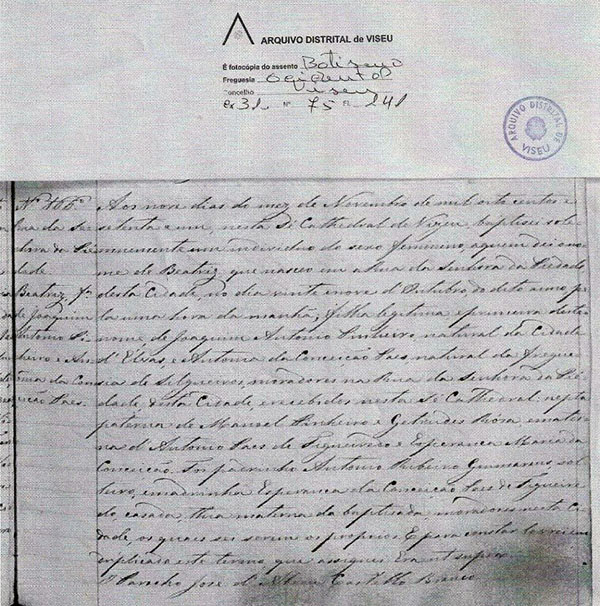 ARQUIVO DISTRITAL de VISEU
É fotocópia do assento Batismo
Freguesia Ocidental
Concelho Viseu
Cx 31 Nº 75 Fl. 241
ARQUIVO DISTRITAL DE VISEU
Nº 166º
Rua da Se
nhora da Pie
dade
Beatriz, fª
de Joaquim
Antonio Pi
nheiro e An
tonia da Con
ceição Paes.
Aos nove dias do mez de Novembro de mil oito centos e
setenta e um, nesta Sé Cathedral de Vizeu, baptisei sole
mnemente um individuo do sexo feminino, a quem dei o no
me de Beatriz, que nasceu em a Rua da Senhora da Piedade
desta Cidade, no dia vinte e nove d'Outubro do dito anno, pe
la uma hora da manhã, filha legitima e primeira deste
nome de Joaquim Antonio Pinheiro, natural da Cidade
d'Elvas, e Antonia da Conceição Paes, natural da fregue
sia de Silgueiros, moradores na Rua da Senhora da Pie
dade desta Cidade, recebidos nesta Sé Cathedral, nepta
paterna de Manuel Pinheiro e Getrudes Rosa, e mater
na d'Antonio Paes de Figueiredo e Esperança Maria da
Conceição. Foi padrinho Antonio Ribeiro Guimarães, sol
teiro, e madrinha Esperança da Conceição Paes de Figueire
do casada, thia materna da baptisada, moradores nesta Ci
dade, os quaes sei serem os proprios. E para constar lavrei em
duplicado este termo, que assignei. Era ut supra.
O Parocho José d' Castilho Branco